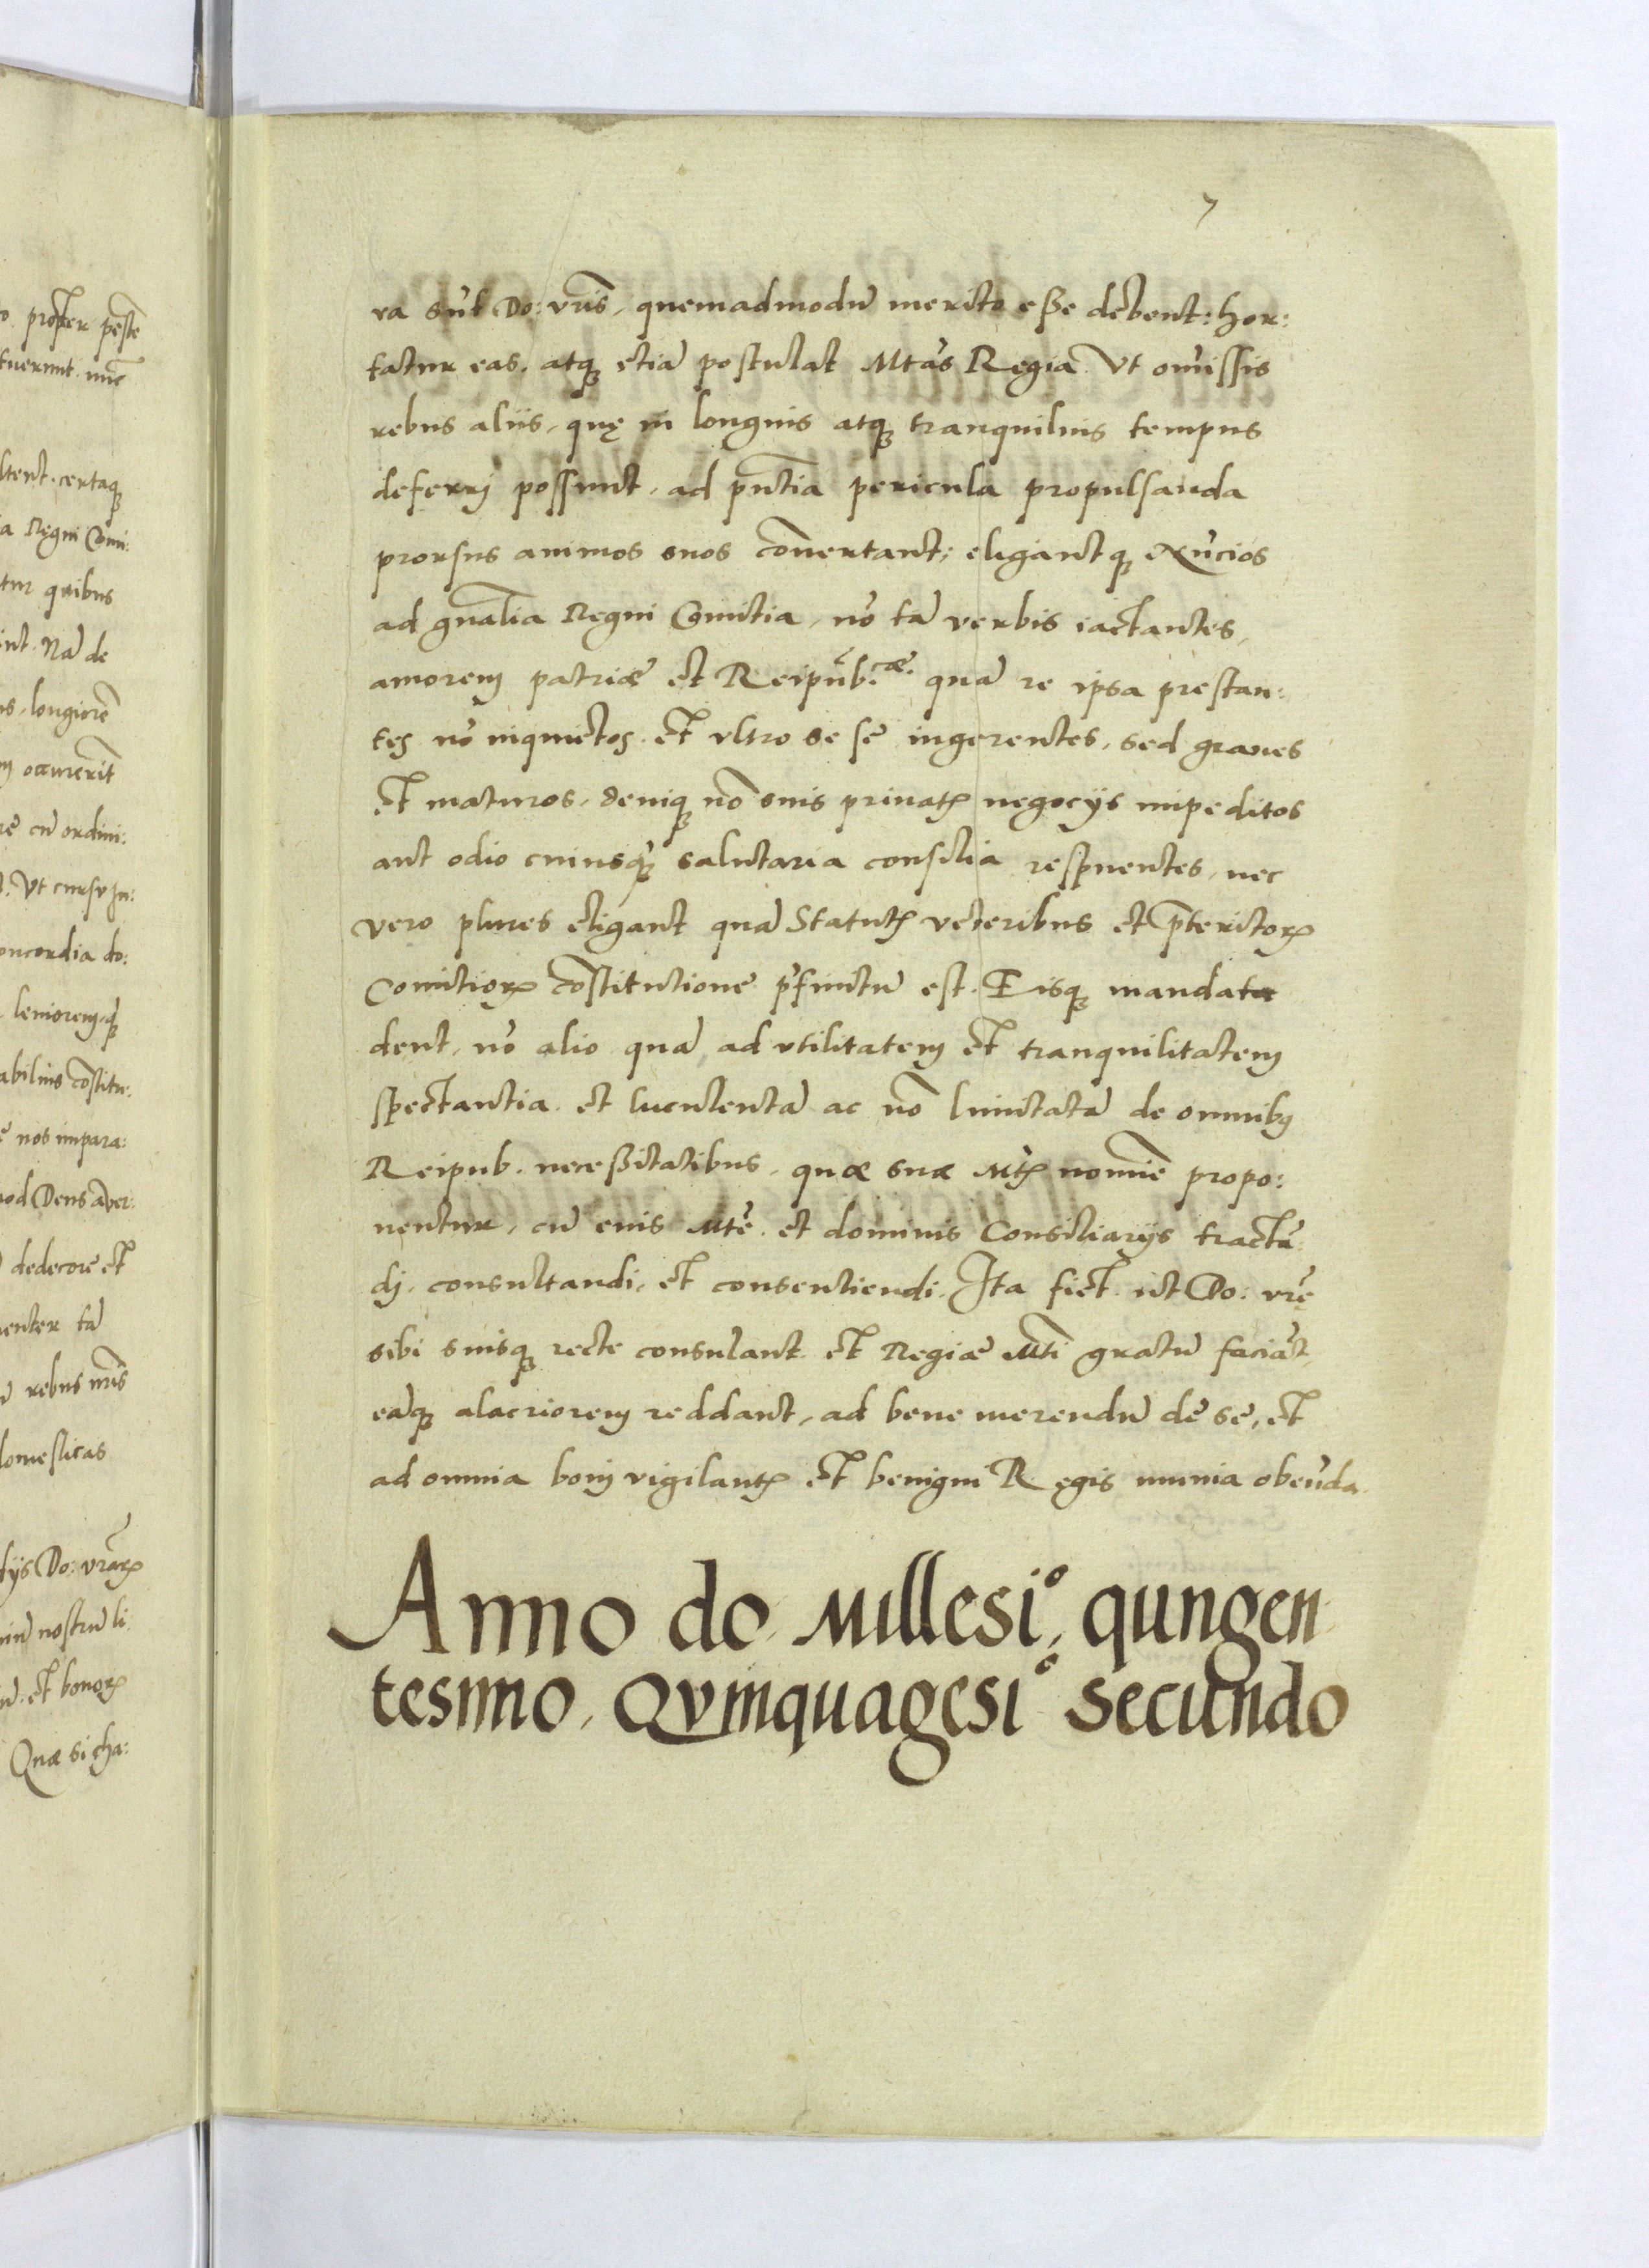 7
ra sūt Do: vrīs, quemadmodū merito eße debent: hor:
tatur eas, atq̨ etiā postulat Mtas Regia. Vt omissis
rebus aliis, quę in longius atq̨ tranquilius tempus
deferrj possunt, ad pn̄tia pericula propulsanda
prorsus animos suos cōuertant: eligantq̨ Nūcios
ad gn̄alia Regni Comitia, nō tā verbis iactantes,
amorem patriæ et Reipūb:cæ. quā re ipsa prestan:
tes nō inquietos. et vltro se se ingerentes, sed graues
et maturos, deniq̨ nō suis priuatꝭ negocijs impeditos
aut odio cuiusq̨ salutaria consilia respuentes, nec
vero plures eligant quā Statutꝭ veteribus et p̄teritorꝝ
Comitiorꝝ cōstitutione p̄finitū est. Eisq̨ mandata
dent, nō alio quā ad vtilitatem et tranquilitatem
spectantia. et luculentā ac nō limitatā de omnibꝰ
Reipub. neceßitatibus, quæ suæ Mtꝭ nomīe propo:
nentur, cū eius Mte. et dominis Consiliarijs tractā:
dj, consultandi, et consentiendi. Ita fiet ut Do: vrę
sibi suisq̨ recte consulant et Regiæ Mti gratū faciāt,
eāq̨ alacriorem reddant, ad bene merendū de se, et
ad omnia bonj vigilantꝭ et benigni Regis munia obeūda.
Anno do Millesi°, qungen
tesimo, Qvinquagesi° secundo
o. propter peste
fuerunt. nūc
ltent. certaq̨
a Regni Comi:
tur quibus
int. Nā de
s, longiorē
m occurerit
re cū ordini:
. Vt cursv In:
oncordia do:
leniorem,q̨
abilius cōstitu:
e nos impara:
od Deus aver:
dedecore et
enter tā
rebus nr̄is
domesticas
tijs Do: vrārꝝ
iū nostrū li
ū. et bonorꝝ
Quæ si cha: